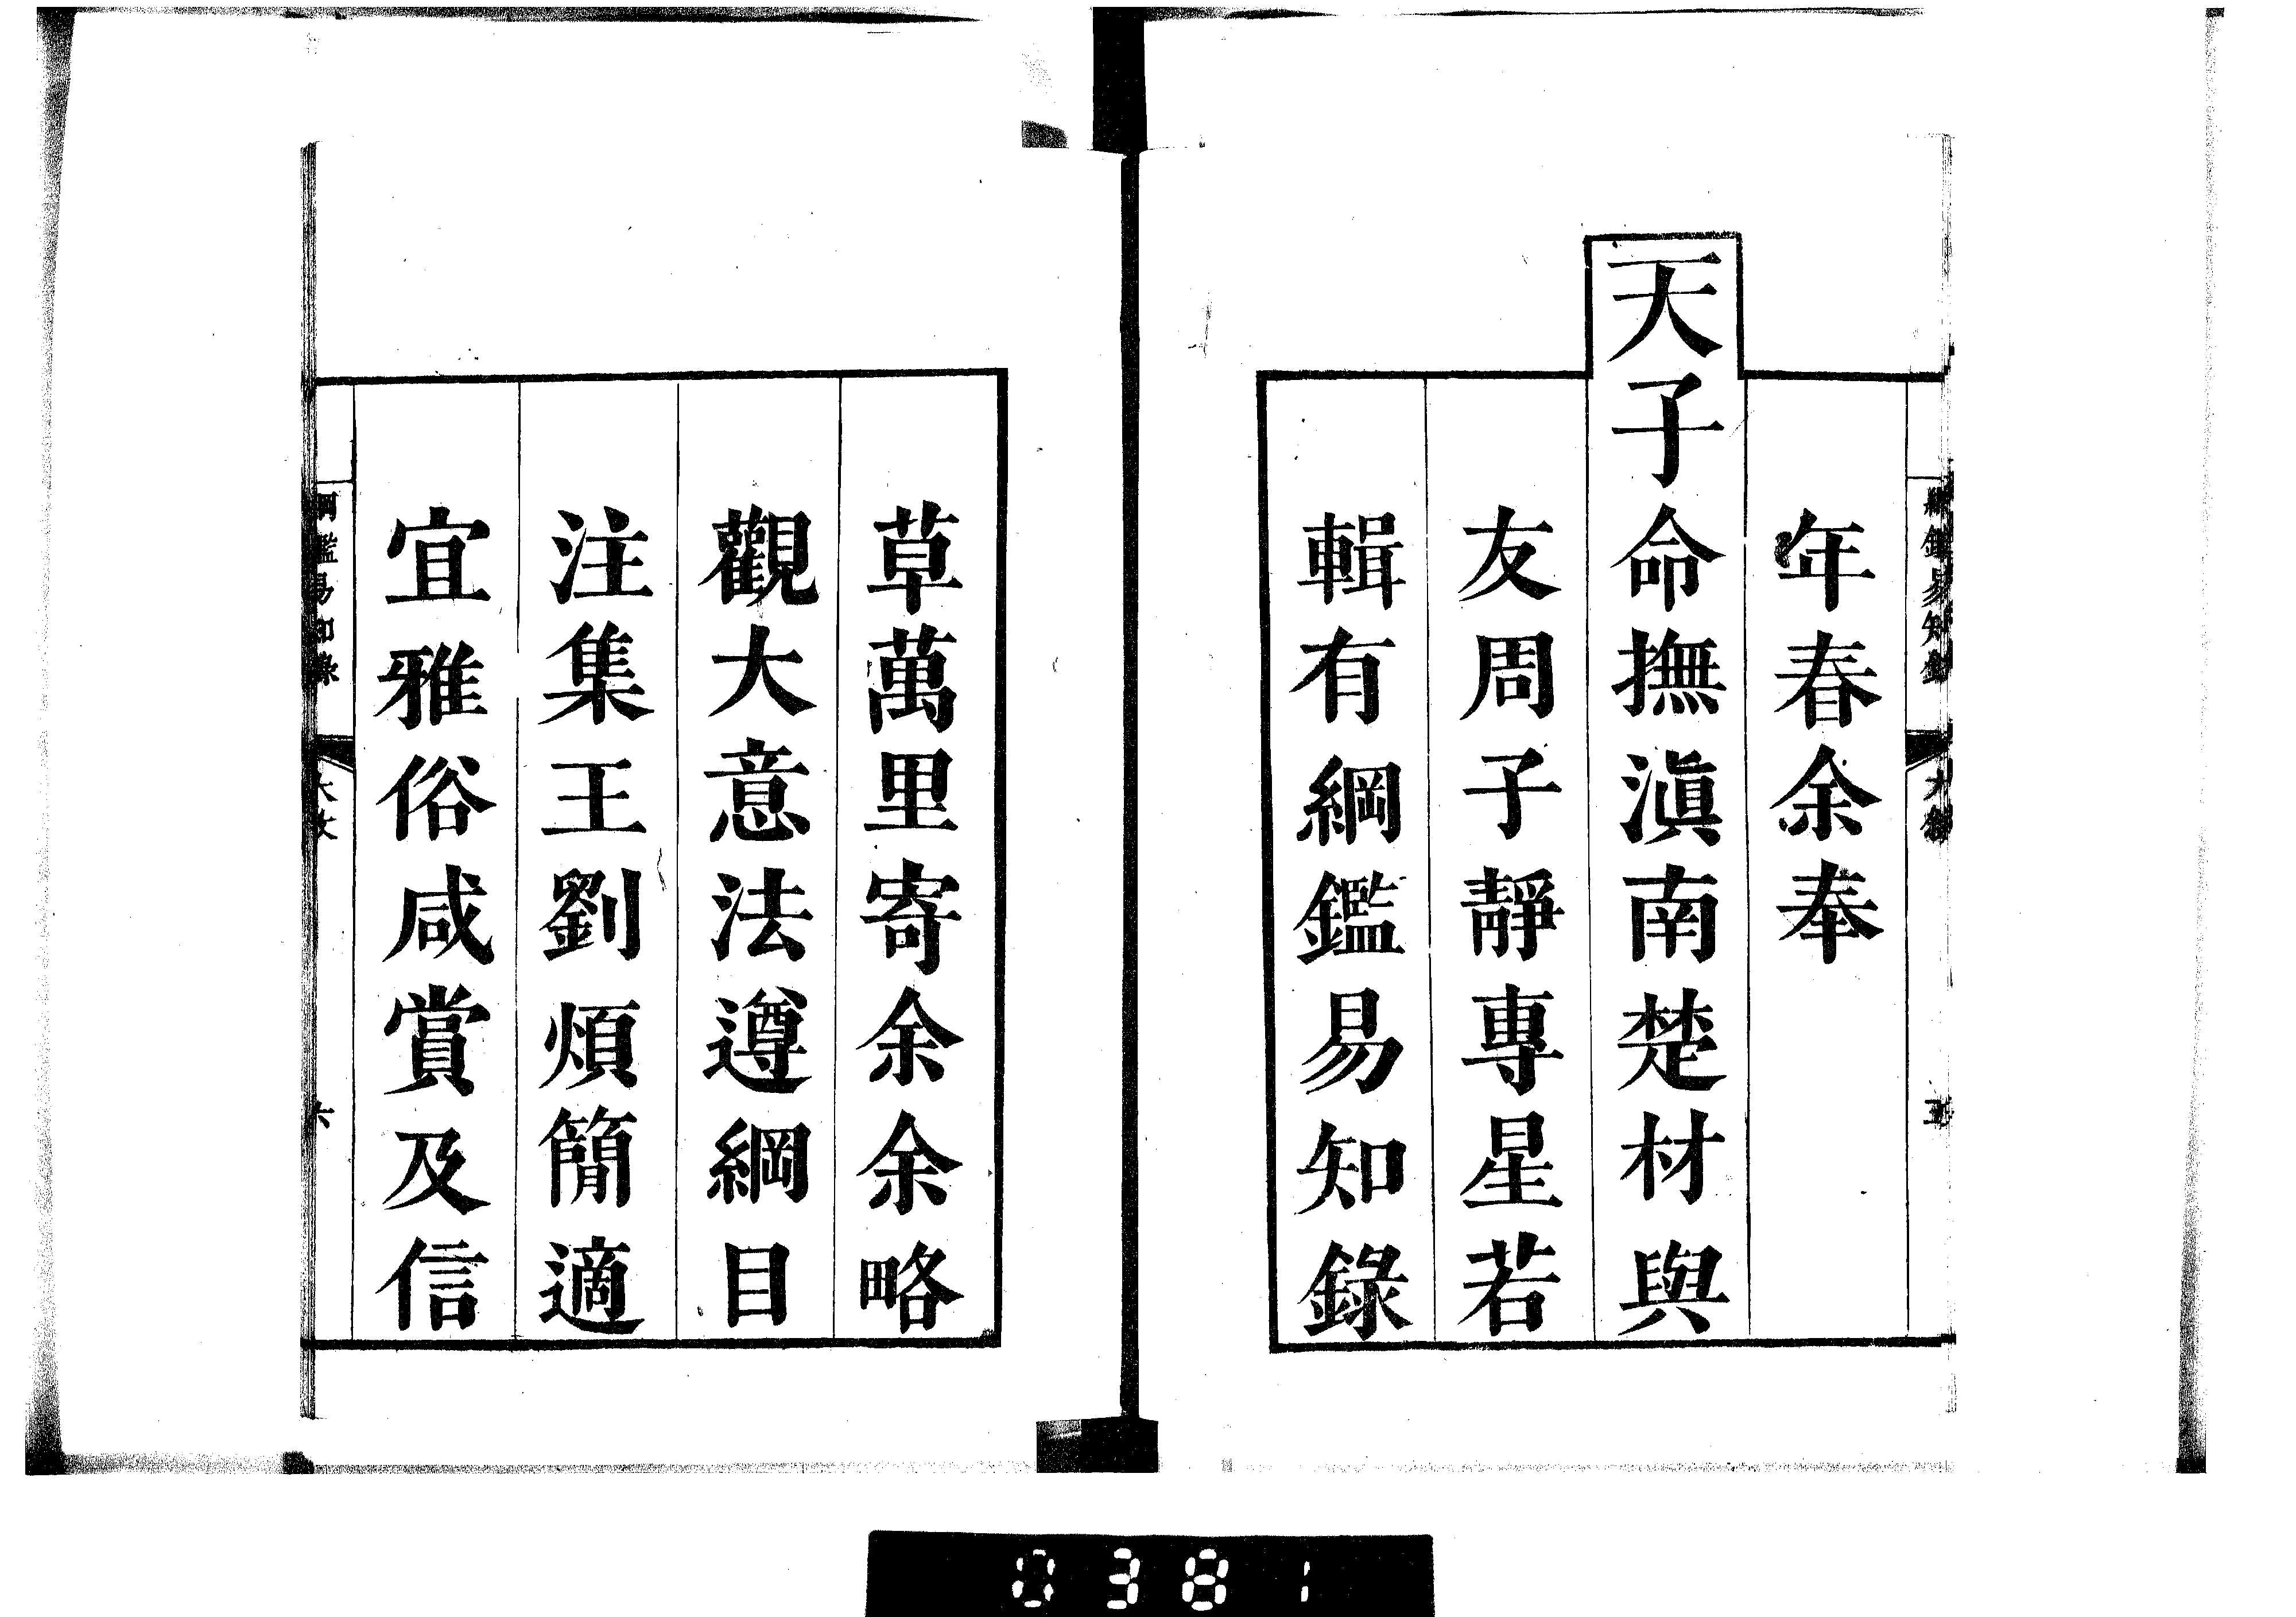 年春余奉
天子命撫滇南楚材與
友周子靜專星若
輯有綱鑑易知錄
草萬里寄余余略
觀大意法遵綱目
注集王劉煩簡適
宜雅俗咸賞及信
綱鑑易知錄
六
0381